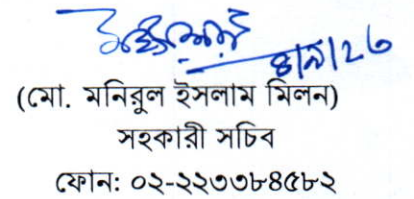 ৪/৯/২৩
(মো. মনিরুল ইসলাম মিলন)
সহকারী সচিব
ফোন: ০২-২২৩৩৮৪৫৮২